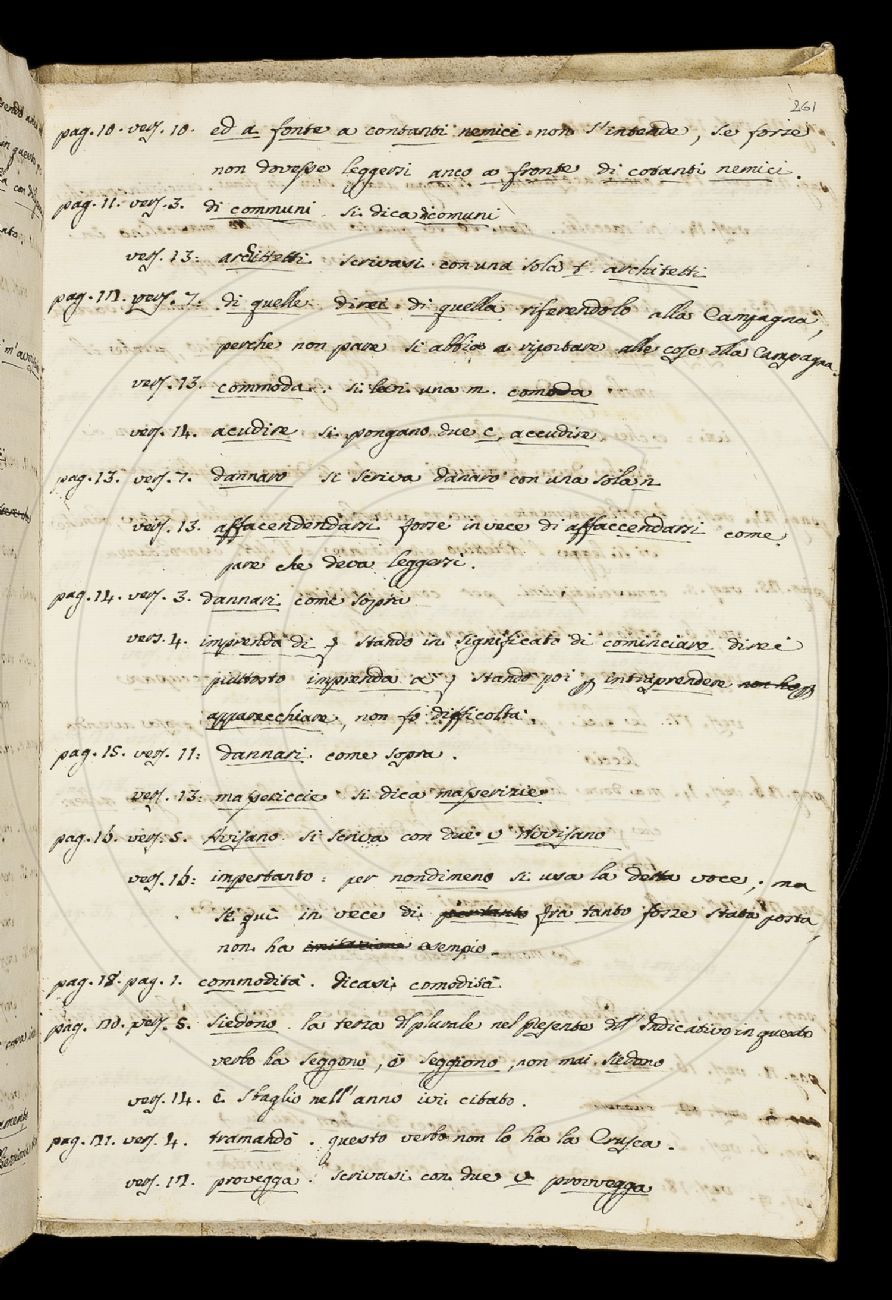 261
pag. 10. vers. 10. ed a fonte a contanti nemici non s'intende, se forse
non dovesse leggersi anco a fronte di cotanti nemici.
pag. 11. vers. 3. di communi si dica di comuni
vers. 13: architetti scrivasi con una sola t architetti
pag. 12. vers. 7: di quelle direi di quella riferendolo alla Campagna,
perche non pare si abbia a riportare alle cose della Campagna.
vers. 13. commoda: si levi una m. comoda
vers. 14. acudire si pongano due c, accudire
pag. 13. vers. 7. dannaro si scriva danaro con una sola n
vers. 13. affacendendarsi forse in vece di affaccendarsi come
pare che deva leggersi.
pag. 14. vers. 3. dannari come sopra
vers. 4. imprenda di stando in significato di cominciare direi
piuttosto imprenda a stando poi intraprendere non ha
apparecchiare, non fo difficoltà.
pag. 15. vers. 11: dannari come sopra.
vers. 13: massericcie si dica masserizie
pag. 16. vers. 5. Avisano si scriva con due v Avvisano
vers. 16: impertanto: per nondimeno si usa la detta voce; ma
se qui in vece di pertanto fra tanto forse stata posta,
non ha imitazione esempio.
pag. 18. pag. 1. commodità. dicasi comodità
pag. 20. vers. 5. siedono. la terza del plurale nel presente dell'Indicativo in questo
verbo ha seggono, o seggiono, non mai siedono
vers. 14. è sbaglio nell'anno ivi citato.
pag. 21. vers. 4. tramandò. questo verbo non lo ha la Crusca.
vers. 12. provegga: scrivasi con due v provvegga